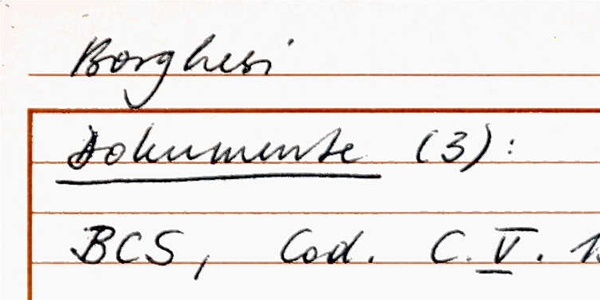 Borghesi
Dokumente (3):
BCS, Cod. C.V.